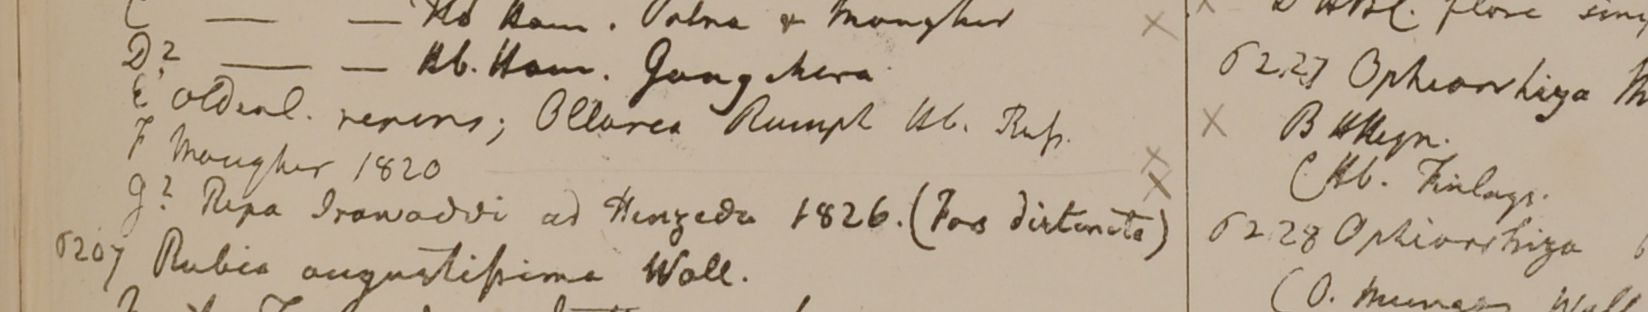 C — — Hb Ham. Patna & Mongher
D? — — Hb. Ham. Gongachera
E Oldenl. repens; Ollarea Rumph Hb. Russ.
F Mongher 1820
G? Ripa Irawaddi ad Henzeda 1826. (Fors distincta)
6207 Rubia angustissima Wall.
flore
6227 Ophiorrhiza
B HHeyn.
C Hb. Finlays.
6228 Ophiorrhiza
(O. Mungos Wall